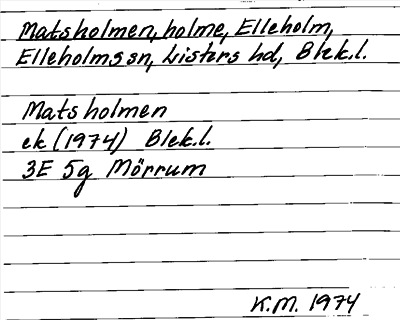 Matsholmen, holme, Elleholm,
Elleholms sn, Listers hd, Blek.l.
Matsholmen
ek (1974) Blek.l.
3E 5g Mörrum
K.M. 1974